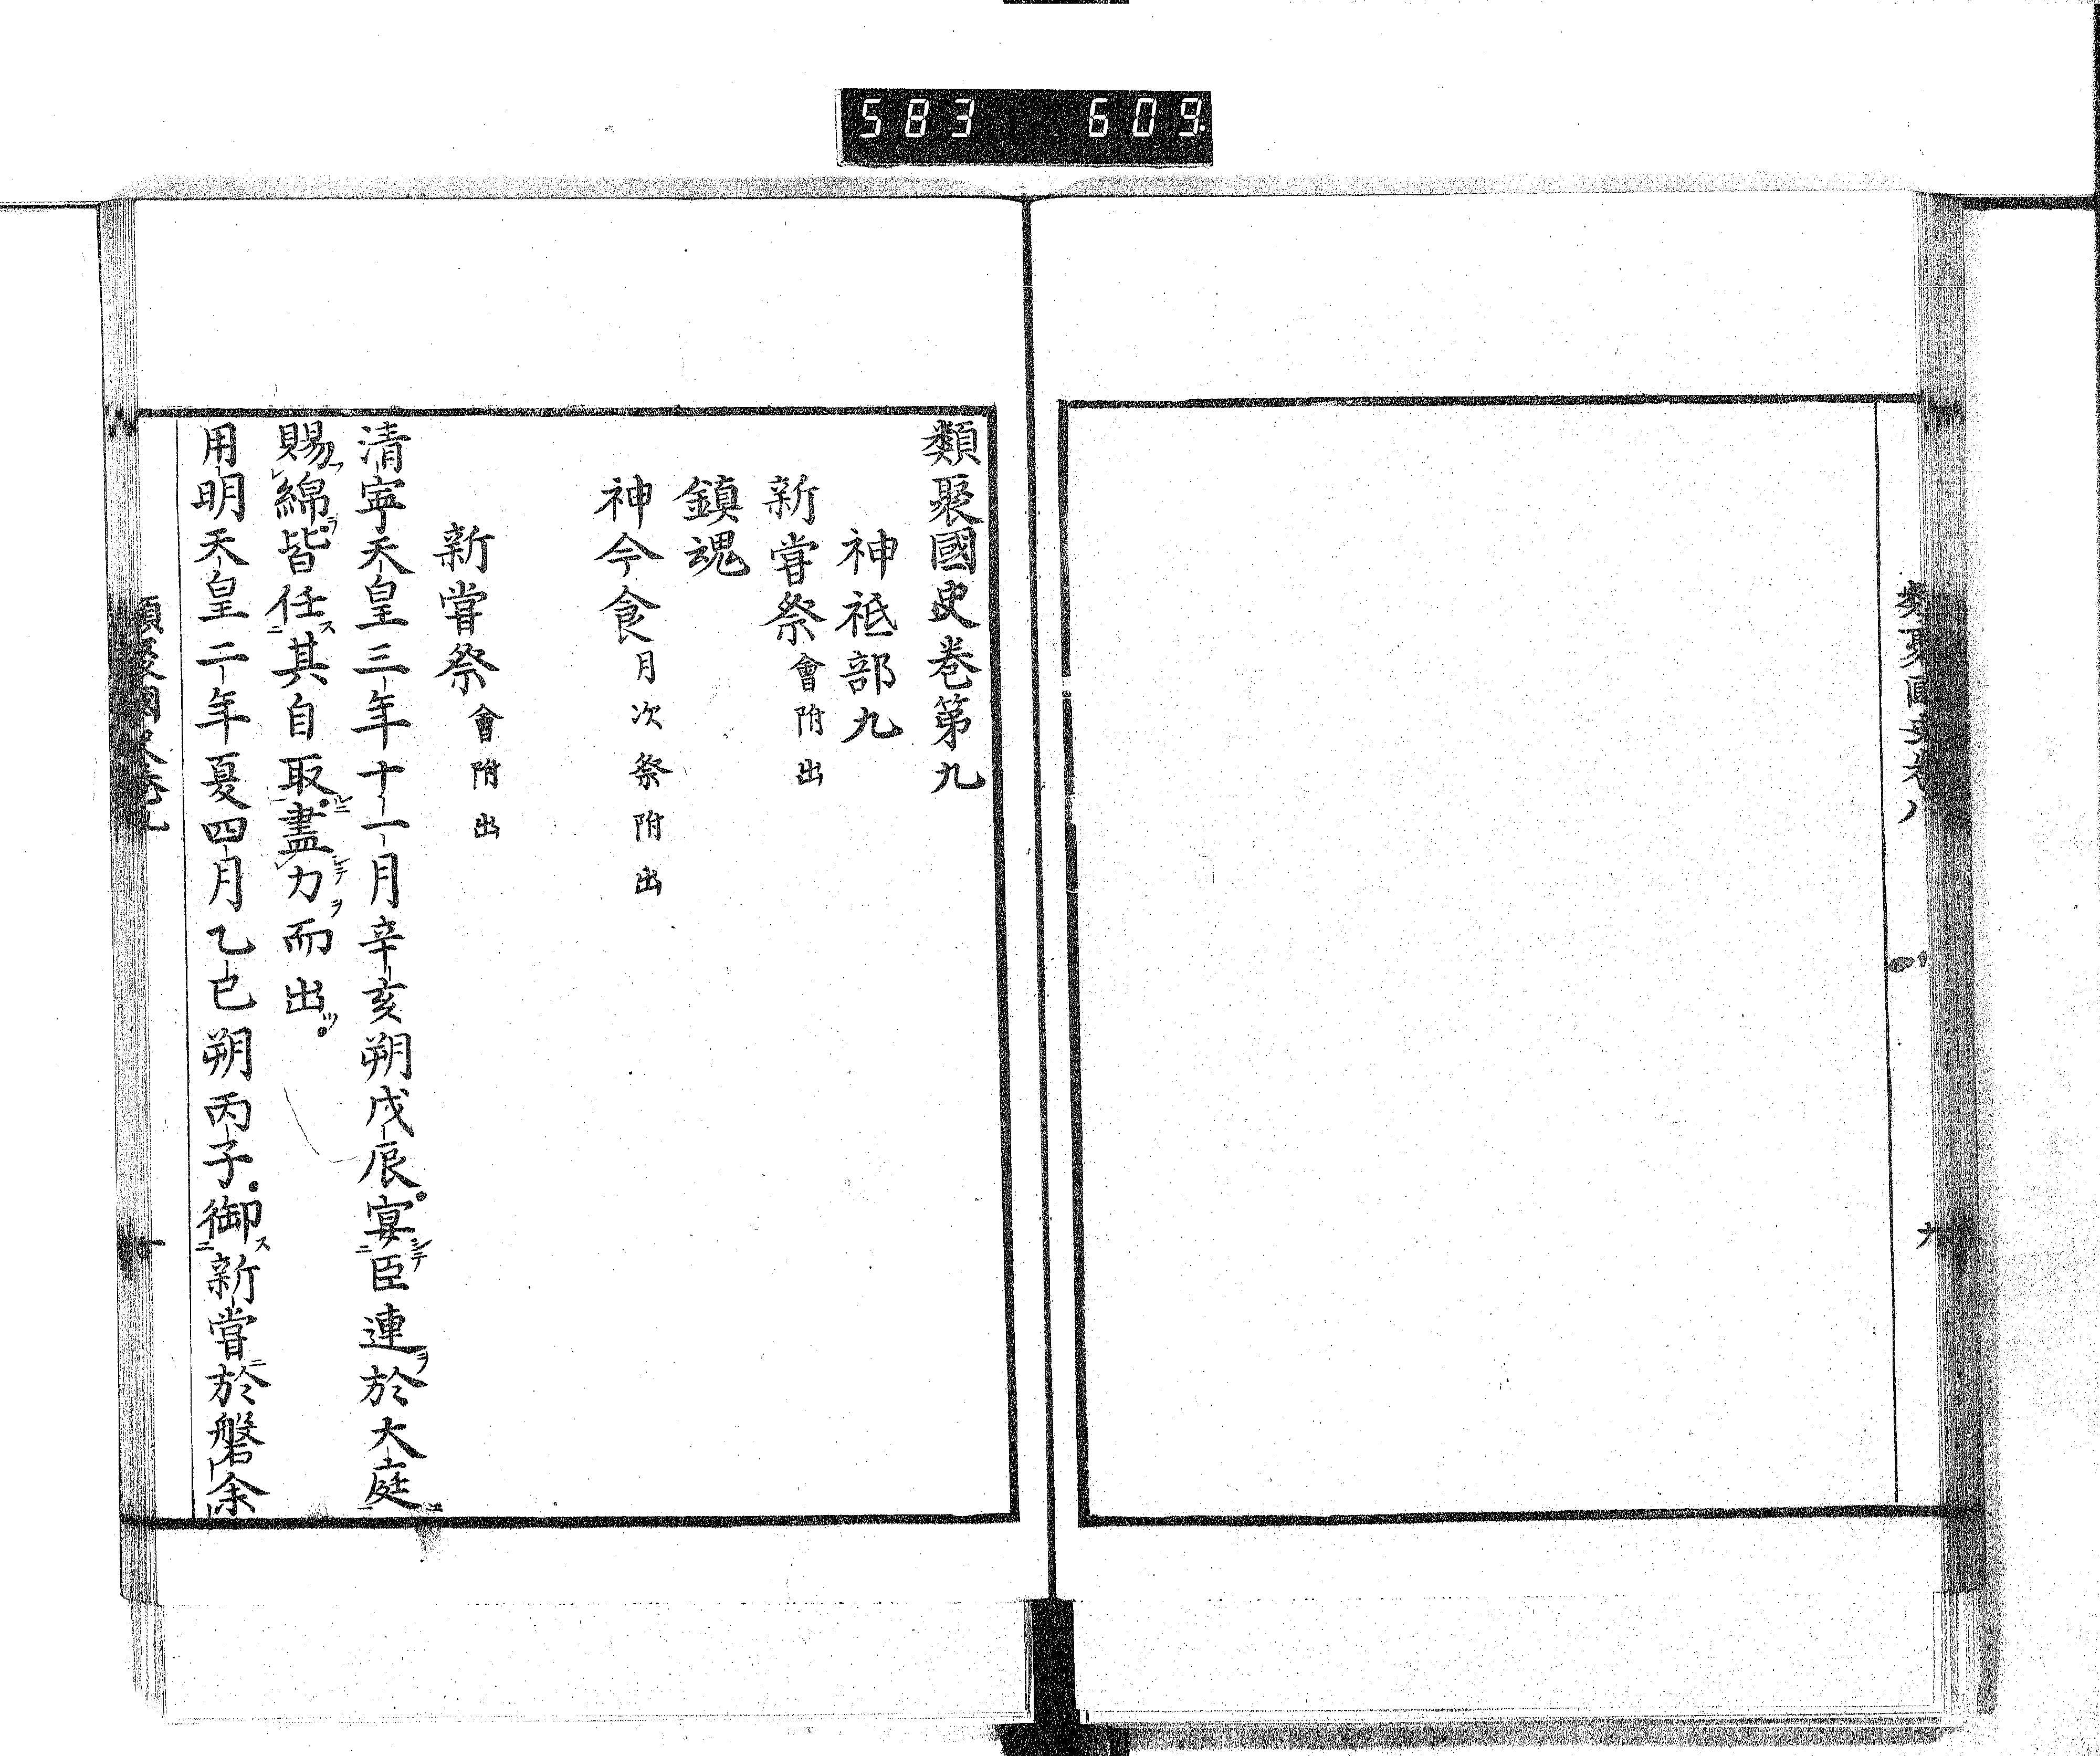 583 609
類聚國史卷八
六
類聚國史卷第九
神祇部九
新嘗祭會附出
鎮魂
神今食月次祭附出
新嘗祭會附出
清寧天皇三年十一月辛亥朔戊辰宴臣連於大庭
賜綿皆任其自取盡力而出
用明天皇二年夏四月乙巳朔丙子御新嘗於磐余
類聚國史卷九